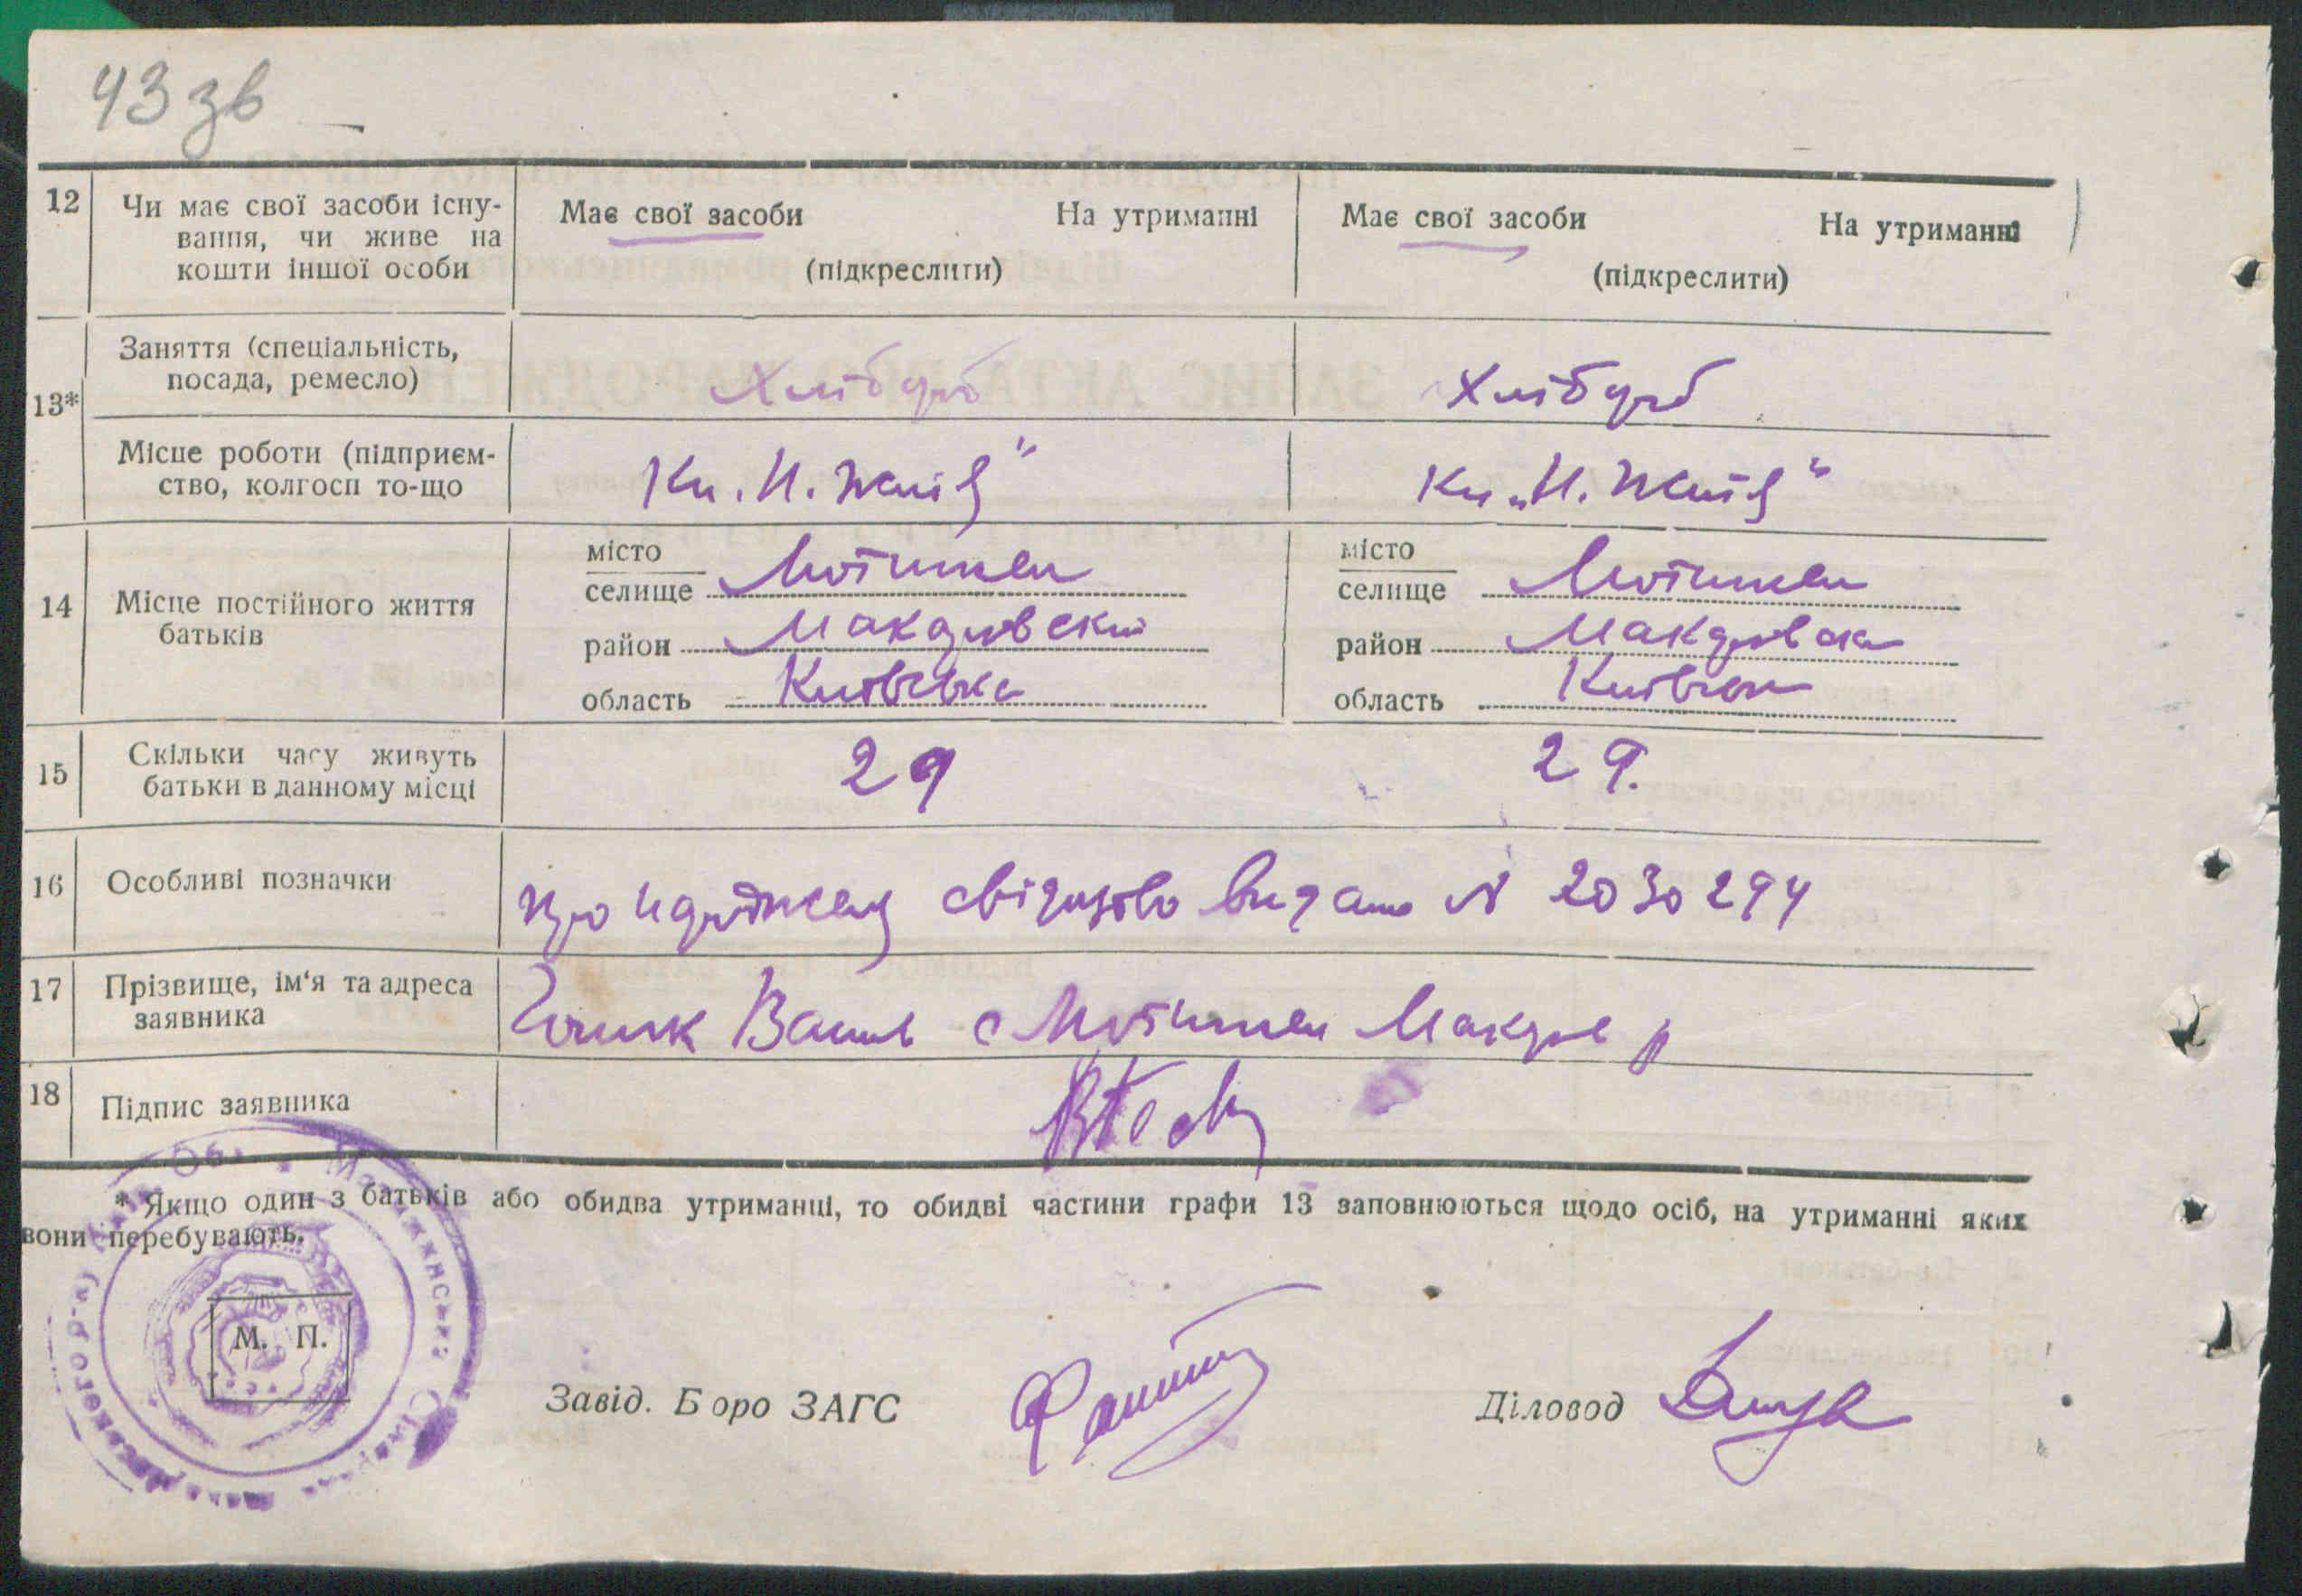 43 зв
12 Чи має свої засоби існу-
вання, чи живе на
кошти іншої особи
Має свої засоби На утриманні
(підкреслити)
Має свої засоби На утриманні
(підкреслити)
13*
Заняття (спеціальність,
посада, ремесло)
Хлібороб
Хлібороб
Місце роботи (підприєм-
ство, колгосп то-що
Кл. Н. Життя"
Кл „Н. Життя"
14 Місце постійного життя
батьків
місто
селище Мотижин
район Макаровский
область Київська
місто
селище Мотижин
район Макаровск
область Київськ
15 Скільки часу живуть
батьки в данному місці
29
29.
16 Особливі позначки
про народження свідоцтво видано № 2030294
17 Прізвище, ім'я та адреса
заявника
Василь с Мотижин Макарів р
18 Підпис заявника
* Якщо один з батьків або обидва утриманці, то обидві частини графи 13 заповнюються щодо осіб, на утриманні яких
вони перебувають.
М. П.
Завід. Бюро ЗАГС
Діловод